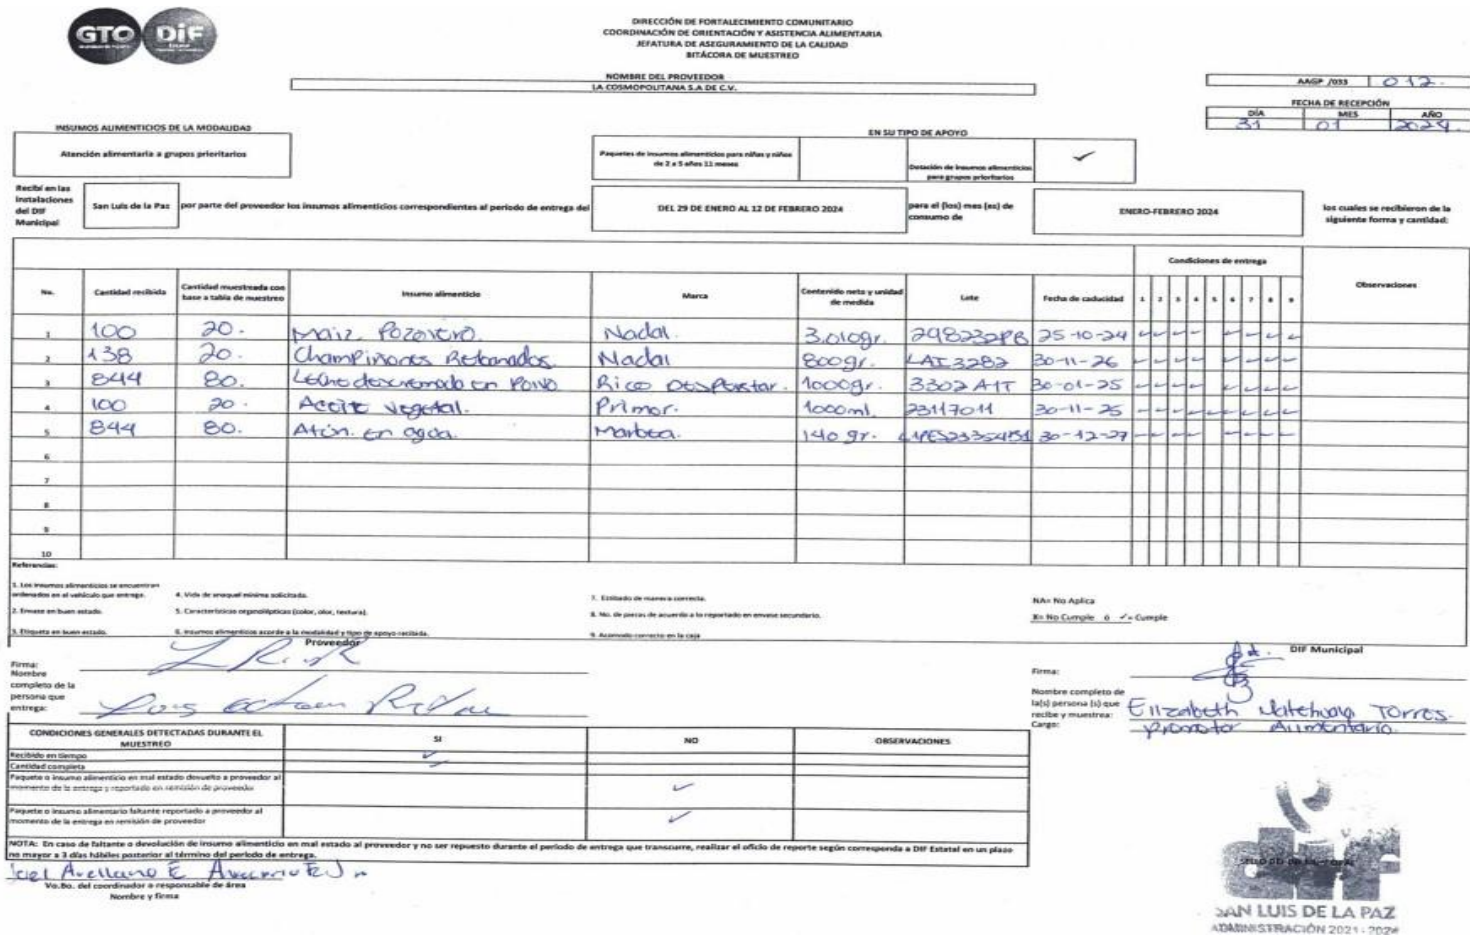 GTO DiF
DIRECCIÓN DE FORTALECIMIENTO COMUNITARIO
COORDINACIÓN DE ORIENTACIÓN Y ASISTENCIA ALIMENTARIA
JEFATURA DE ASEGURAMIENTO DE LA CALIDAD
BITÁCORA DE MUESTREO
NOMBRE DEL PROVEEDOR
LA COSMOPOLITANA S.A DE C.V.
AAGP /033 012.
FECHA DE RECEPCIÓN
DÍA MES AÑO
31 01 2024.
INSUMOS ALIMENTICIOS DE LA MODALIDAD
EN SU TIPO DE APOYO
Atención alimentaria a grupos prioritarios
Paquetes de insumos alimenticios para niñas y niños
de 2 a 5 años 11 meses
Dotación de insumos alimenticios
para grupos prioritarios ✓
Recibí en las
instalaciones
del DIF
Municipal
San Luis de la Paz
por parte del proveedor los insumos alimenticios correspondientes al periodo de entrega del
DEL 29 DE ENERO AL 12 DE FEBRERO 2024
para el (los) mes (es) de
consumo de
ENERO-FEBRERO 2024
los cuales se recibieron de la
siguiente forma y cantidad:
Condiciones de entrega
No. Cantidad recibida Cantidad muestreada con base a tabla de muestreo Insumo alimenticio Marca Contenido neto y unidad de medida Lote Fecha de caducidad 1 2 3 4 5 6 7 8 9 Observaciones
1 100 20. Maiz Pozolero. Nadal. 3.010gr. 298232PB 25-10-24 ✓ ✓ ✓ ✓ ✓ ✓ ✓ ✓
2 138 20. Champiñones Rebanados Nadal 800gr. LAI3282 30-11-26 ✓ ✓ ✓ ✓ ✓ ✓ ✓ ✓
3 844 80. Leche descremada en Polvo Rico 1000gr. 3302 A1T 30-01-25 ✓ ✓ ✓ ✓ ✓ ✓ ✓ ✓
4 100 20. Aceite vegetal. Primor. 1000ml. 23117011 30-11-25 ✓ ✓ ✓ ✓ ✓ ✓ ✓ ✓ ✓
5 844 80. Atún. en agua. Marbea. 140 gr. 30-12-27 ✓ ✓ ✓ ✓ ✓ ✓ ✓ ✓
6
7
8
9
10
Referencias:
1. Los insumos alimenticios se encuentran
ordenados en el vehículo que entrega.
2. Envase en buen estado.
3. Etiqueta en buen estado.
4. Vida de anaquel mínima solicitada.
5. Características organolépticas (color, olor, textura).
6. Insumos alimenticios acorde a la modalidad y tipo de apoyo recibida.
7. Estibado de manera correcta.
8. No. de piezas de acuerdo a lo reportado en envase secundario.
9. Acomodo correcto en la caja
NA= No Aplica
X= No Cumple ó ✓= Cumple
Proveedor
Firma:
Nombre
completo de la
persona que
entrega:
DIF Municipal
Firma:
Nombre completo de
la(s) persona (s) que
recibe y muestrea: Elizabeth Matehuala Torres.
Cargo: Promotor Alimentario.
CONDICIONES GENERALES DETECTADAS DURANTE EL MUESTREO SI NO OBSERVACIONES
Recibido en tiempo ✓
Cantidad completa ✓
Paquete o insumo alimenticio en mal estado devuelto a proveedor al
momento de la entrega y reportado en remisión de proveedor ✓
Paquete o insumo alimentario faltante reportado a proveedor al
momento de la entrega en remisión de proveedor ✓
NOTA: En caso de faltante o devolución de insumo alimenticio en mal estado al proveedor y no ser repuesto durante el periodo de entrega que transcurre, realizar el oficio de reporte según corresponda a DIF Estatal en un plazo
no mayor a 3 días hábiles posterior al término del periodo de entrega.
Arellano E
Vo.Bo. del coordinador o responsable de área
Nombre y firma
dif
SAN LUIS DE LA PAZ
ADMINISTRACIÓN 2021 - 2024